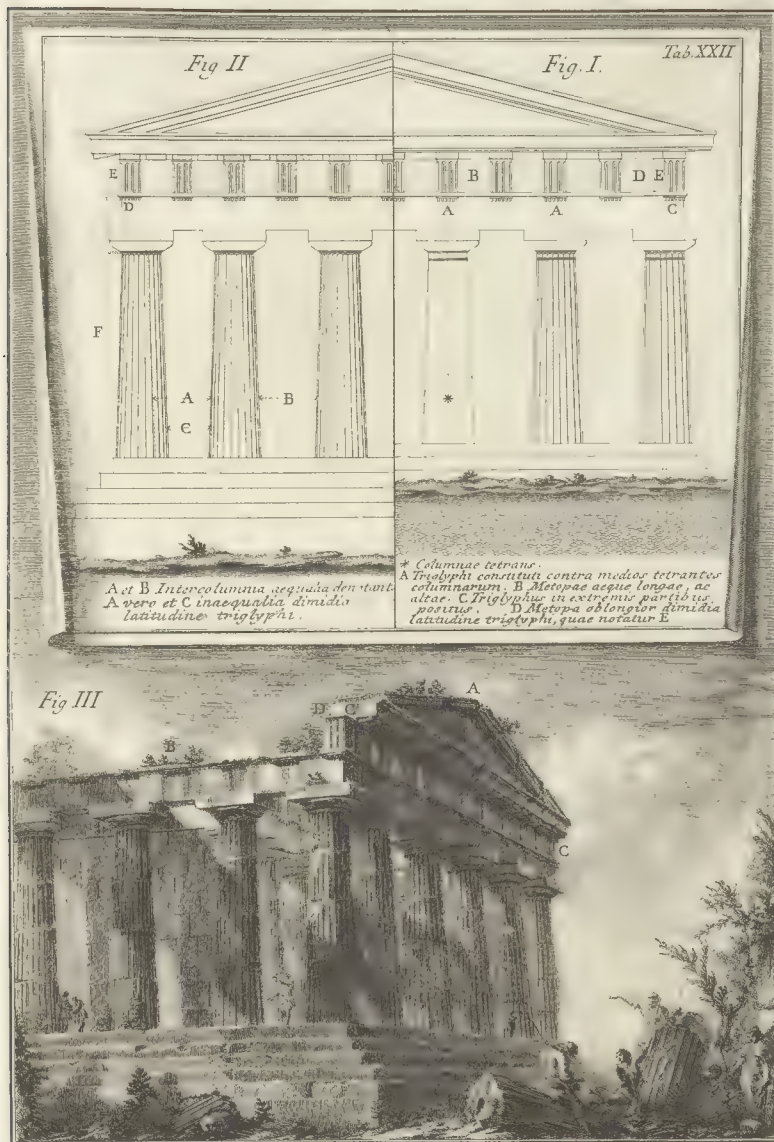 Fig II
Fig. I.
Tab. XXII
E
B
D E
D
A
A
C
F
A
B
C
*
A et B Intercolumnia aequalia
A vero et C inaequalia dimidia
latitudine triglyphi.
* Columnae tetrans.
A Triglyphi constituti contra medios tetrantes
columnarum. B Metopae aeque longae, ac
altae. C Triglyphus in extremis partibus
positus. D Metopa oblongior dimidia
latitudine triglyphi, quae notatur E
Fig III
A
D C
B
C